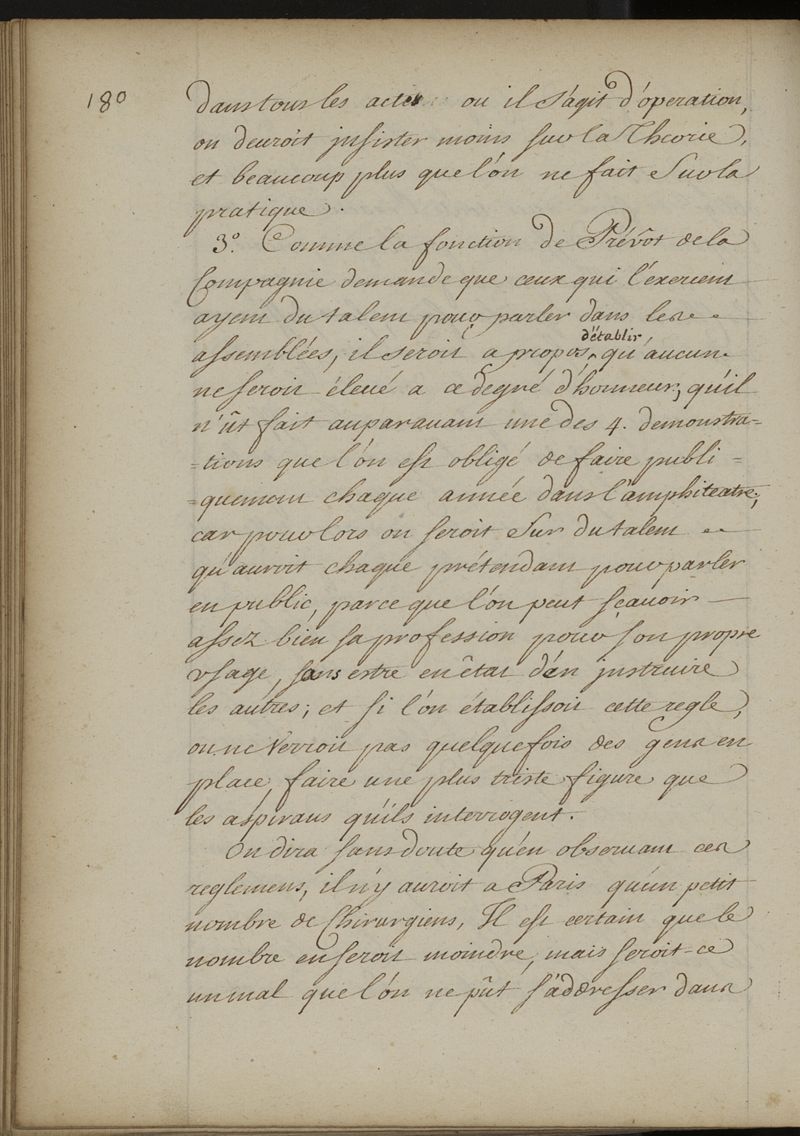 180
dans tous les actes ou il s'agit d'operation,
on devroit jnsister moins sur la Theorie,
et beaucoup plus que l'on ne fait sur la
pratique.
3º. Comme la fonction de Prévôt de la
Compagnie demande que ceux qui l'exercent
ayent du talent pour parler dans les
assemblées, il seroit a propos, d'établir qu'aucun
ne seroit élevé a ce degré d'honneur, qu'il
n'ût fait auparavant une des 4. demonstra=
=tions que l'on est obligé de faire publi=
=quement chaque année dans l'amphiteatre;
car pour lors on seroit sur du talent
qu'auroit chaque prétendant pour parler
en public, parce que l'on peut sçavoir
assez bien sa profession pour son propre
vsage, sans estre en êtat d'en jnstruire
les autres; et si l'on établissoit cette regle,
on ne verroit pas quelquefois des gens en
place, faire une plus triste figure que
les aspirans qu'ils interrogent.
On dira sans doute qu'en observant ces
reglemens, il n'y auroit a Paris qu'un petit
nombre de Chirurgiens, Il est certain que le
nombre en seroit moindre, mais seroit-ce
un mal que l'on ne pût s'adresser dans